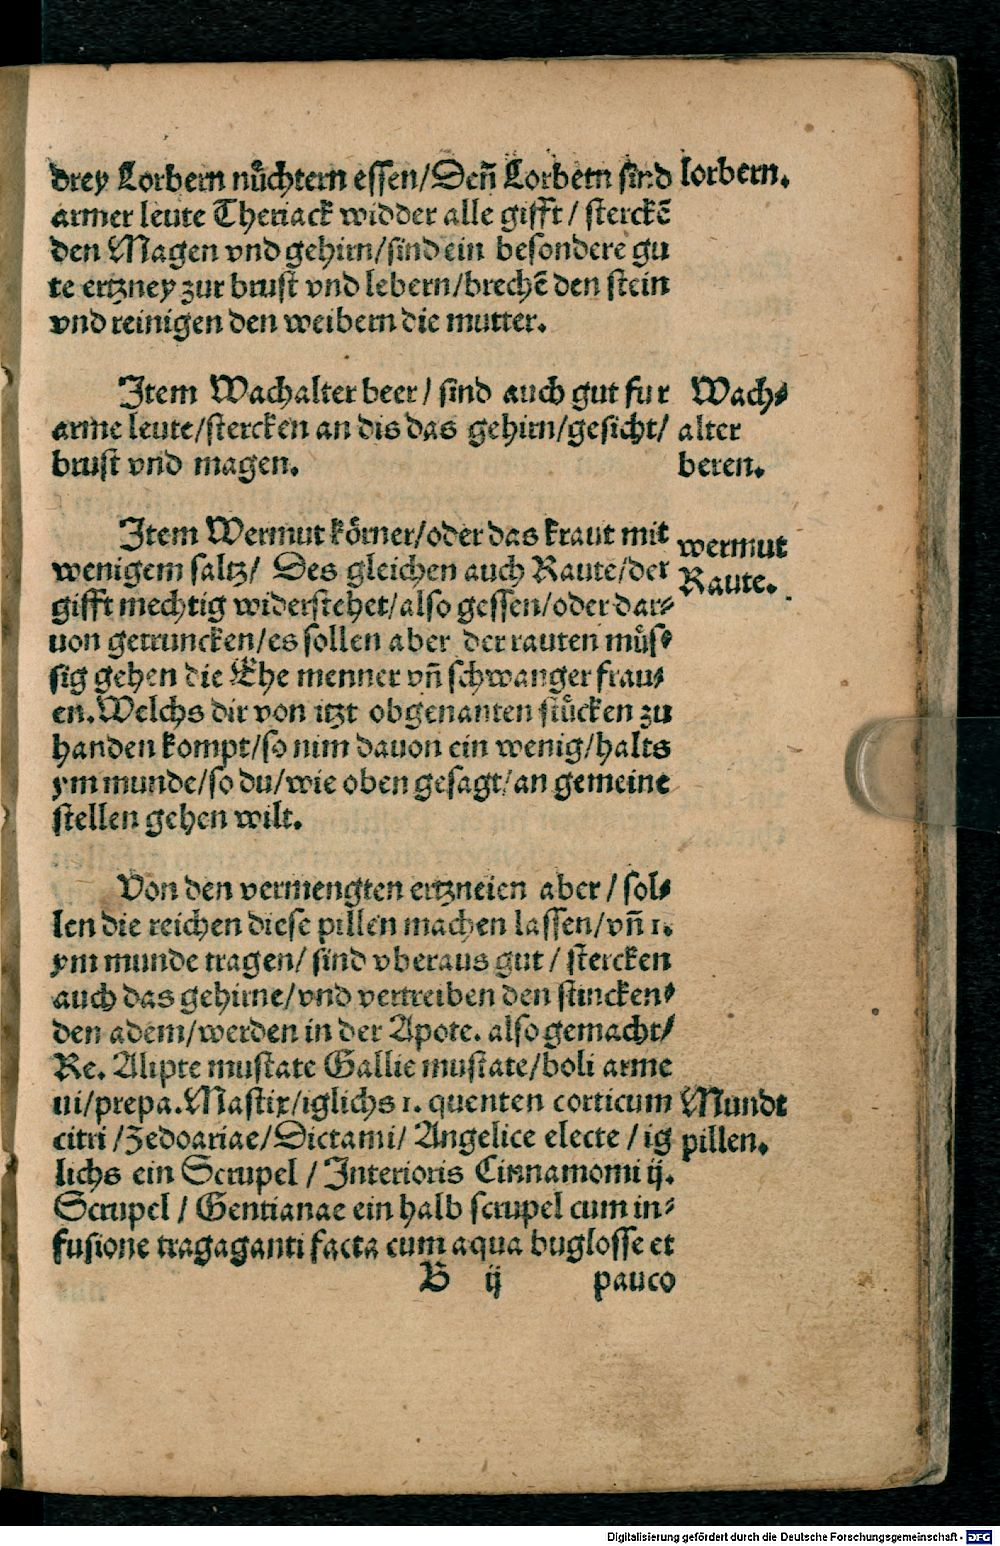 drey Lorbern nuͤchtern essen/Deñ Lorbern sind
lorbern.
armer leute Theriack widder alle gifft/ sterckē
den Magen vnd gehirn/sind ein besondere gu
te ertzney zur brust vnd lebern/brechē den stein
vnd reinigen den weibern die mutter.
Item Wachalter beer/ sind auch gut fur
arme leute/stercken an dis das gehirn/gesicht/
brust vnd magen.
Wach⸗
alter
beren.
Item Wermut koͤrner/oder das kraut mit
wenigem saltz/ Des gleichen auch Raute/der
gifft mechtig widerstehet/also gessen/oder dar⸗
uon getruncken/es sollen aber der rauten muͤs⸗
sig gehen die Ehe menner vñ schwanger frau⸗
en.Welchs dir von itzt obgenanten stuͤcken zu
handen kompt/so nim dauon ein wenig/halts
ym munde/so du/wie oben gesagt/an gemeine
stellen gehen wilt.
wermut
Raute.
Von den vermengten ertzneien aber/ sol⸗
len die reichen diese pillen machen lassen/vñ 1.
ym munde tragen/ sind vberaus gut/ stercken
auch das gehirne/vnd vertreiben den stincken⸗
den adem/werden in der Apote. also gemacht/
Re. Alipte muskate Gallie muskate/boli arme
ni/prepa.Mastix/iglichs 1. quenten corticum
citri/Zedoariae/Dictami/ Angelice electe/ ig
lichs ein Scrupel/ Interioris Cinnamomi ij.
Scrupel/ Gentianae ein halb scrupel cum in⸗
fusione tragaganti facta cum aqua buglosse et
Mundt
pillen.
B ij pauco
Digitalisierung gefördert durch die Deutsche Forschungsgemeinschaft - DFG